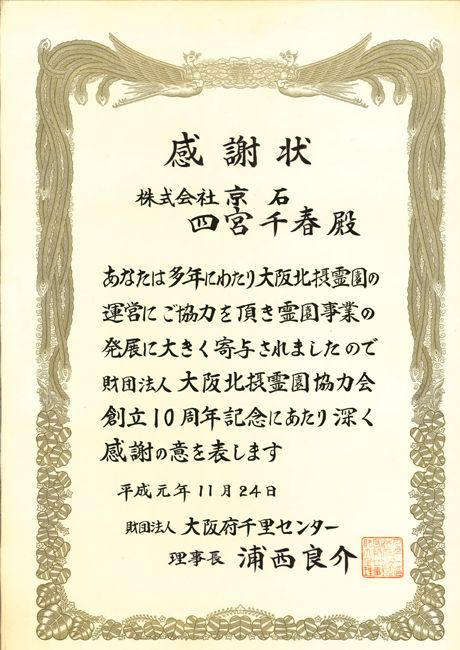 感謝状
株式会社 京石
四宮千春殿
あなたは多年にわたり大阪北摂霊園の
運営にご協力を頂き霊園事業の
発展に大きく寄与されましたので
財団法人 大阪北摂霊園協力会
創立10周年記念にあたり深く
感謝の意を表します
平成元年11月24日
財団法人 大阪府千里センター
理事長 浦西良介